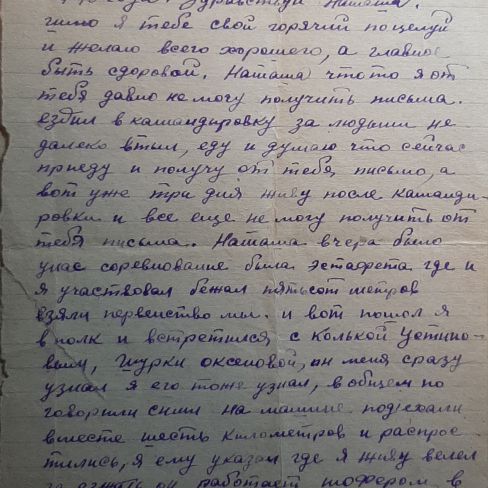 Здравствуй Наташа.
шлю я тебе свой горячий поцелуй
и желаю всего хорошего, а главное
быть здоровой. Наташа что то я от
тебя давно не могу получить письма.
ездил в камандировку за людьми не
далеко втыл, еду и думаю что сейчас
приеду и получу от тебя письмо, а
вот уже три дня живу после каманди-
ровки и все еще не могу получить от
тебя письма. Наташа вчера было
унас соревнование была эстафета где и
я участвовал бежал пятьсот метров
взяли первенство мы. и вот пошол я
в полк и встретился с Колькой Устино-
вым, Шурки оксеновой, он меня сразу
узнал я его тоже узнал, в общем по
говорили сним на машине подъехали
вместе шесть километров и распрос
тились, я ему указал где я живу велел
он работает шофером в